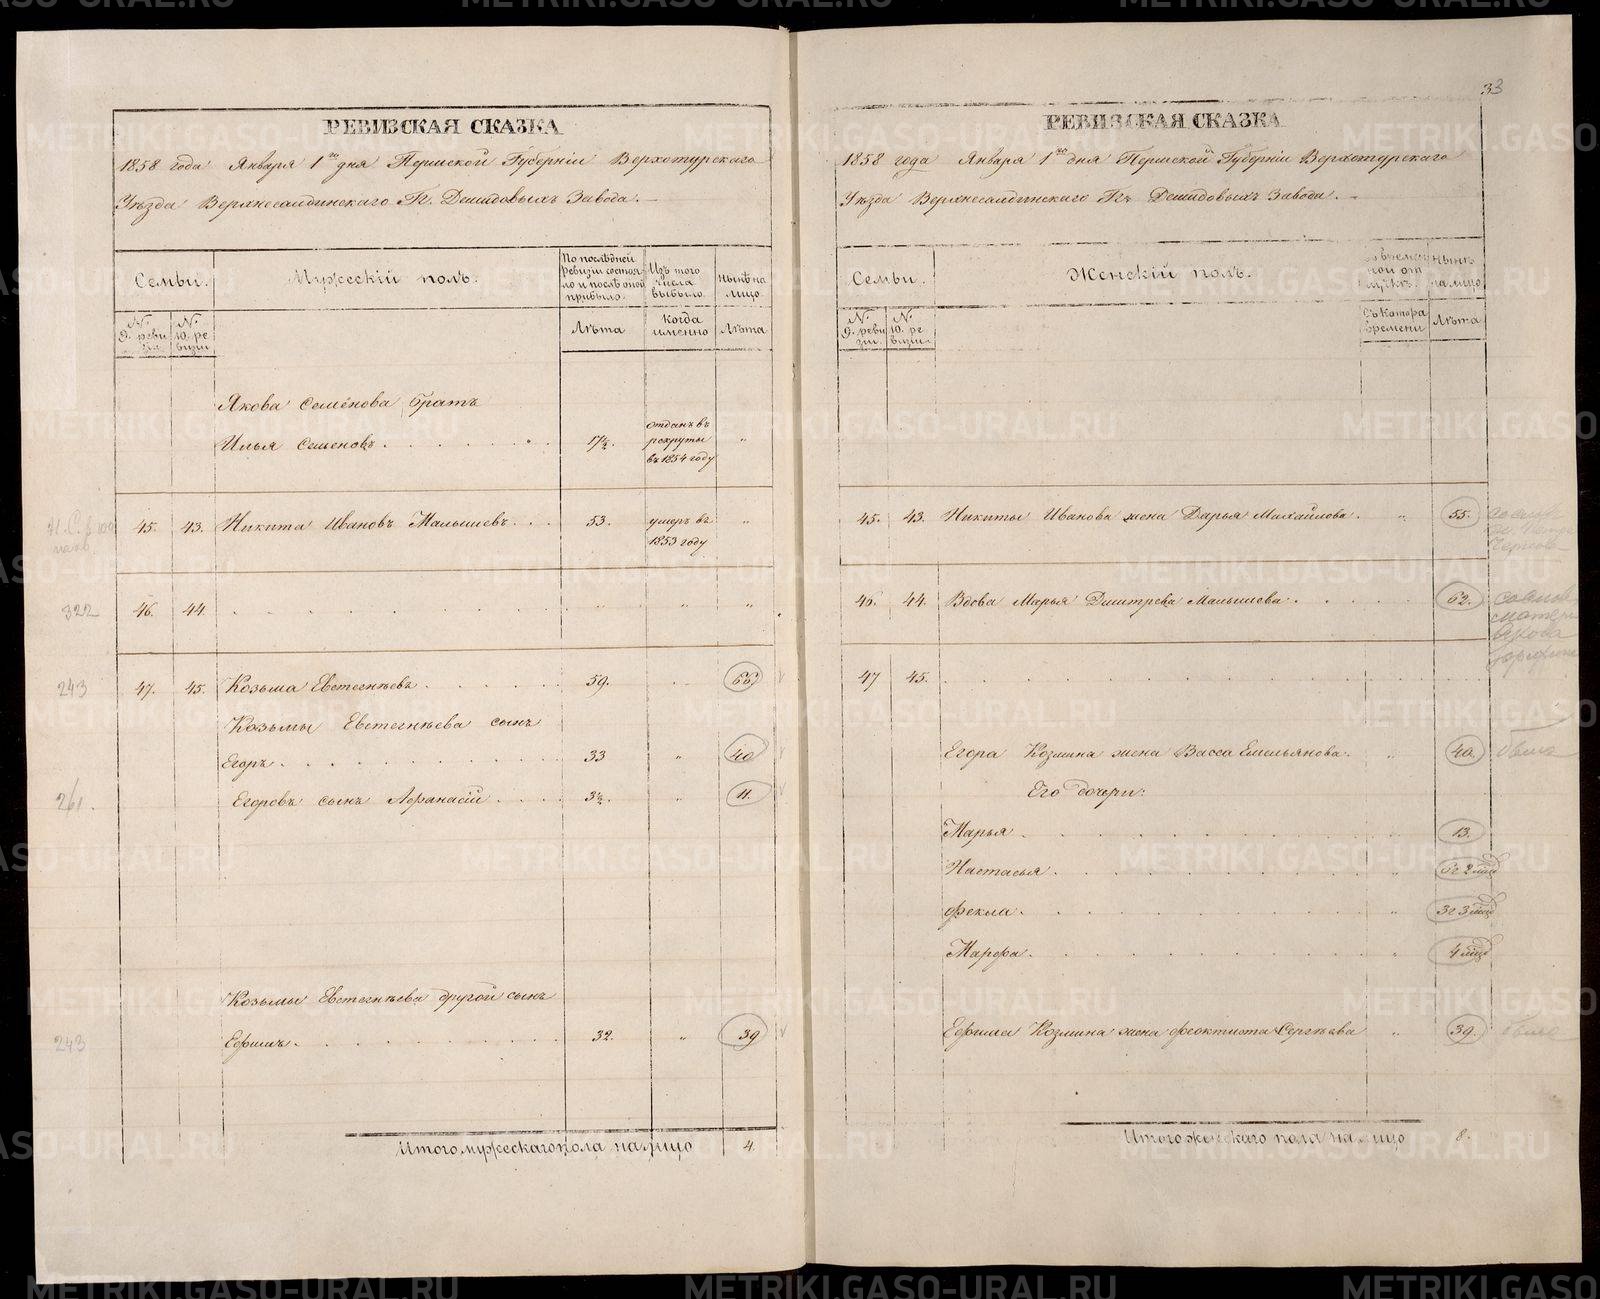 33
РЕВИЗСКАЯ СКАЗКА
1858 года Января 1го дня Пермской Губерніи Верхотурскаго
Уѣзда Верхнесалдинскаго Гг. Демидовыхъ Завода.
Семьи.
Мужескій полъ.
По послѣдней ревизіи состояло и послѣ оной прибыло.
Изъ того числа выбыло.
Нынѣ на лицо.
№ 9. ревизіи.
№ 10. ревизіи
Лѣта
Когда именно
Лѣта
Якова Семёнова братъ
Илья Семеновъ 17½. отданъ въ рекруты въ 1854 году "
45. 43. Никита Ивановъ Малышевъ 53. умеръ въ 1853 году "
322 46. 44. " " "
243 47. 45. Козьма Евстегнѣевъ 59. 66
Козьмы Евстегнѣева сынъ
Егоръ 33 " 40
261. Егоровъ сынъ Афанасій 3½. " 11.
Козьмы Евстегнѣева другой сынъ
243 Ефимъ 32. " 39
Итого мужескаго пола на лицо 4.
РЕВИЗСКАЯ СКАЗКА
1858 года Января 1го дня Пермской Губерніи Верхотурскаго
Уѣзда Верхнесалдинскаго Гг. Демидовыхъ Завода.
Семьи.
Женскій полъ.
во времянной отлучкѣ.
Нынѣ на лицо
№ 9. ревизіи.
№ 10. ревизіи.
Съ котора времени
Лѣта
45. 43. Никиты Иванова жена Дарья Михайлова. " 55.
46. 44. Вдова Марья Дмитрева Малышева. 62.
47 45.
Егора Козмина жена Васса Емельянова. " 40.
Его дочери:
Марья. 13.
Настасья. 6 г 2 мѣс
Фекла. " 3 г 3 мѣс
Марфа. " 4 мѣс
Ефима Козмина жена Феоктиста Сергѣева " 39.
Итого женскаго пола на лицо 8.
METRIKI.GASO-URAL.RU